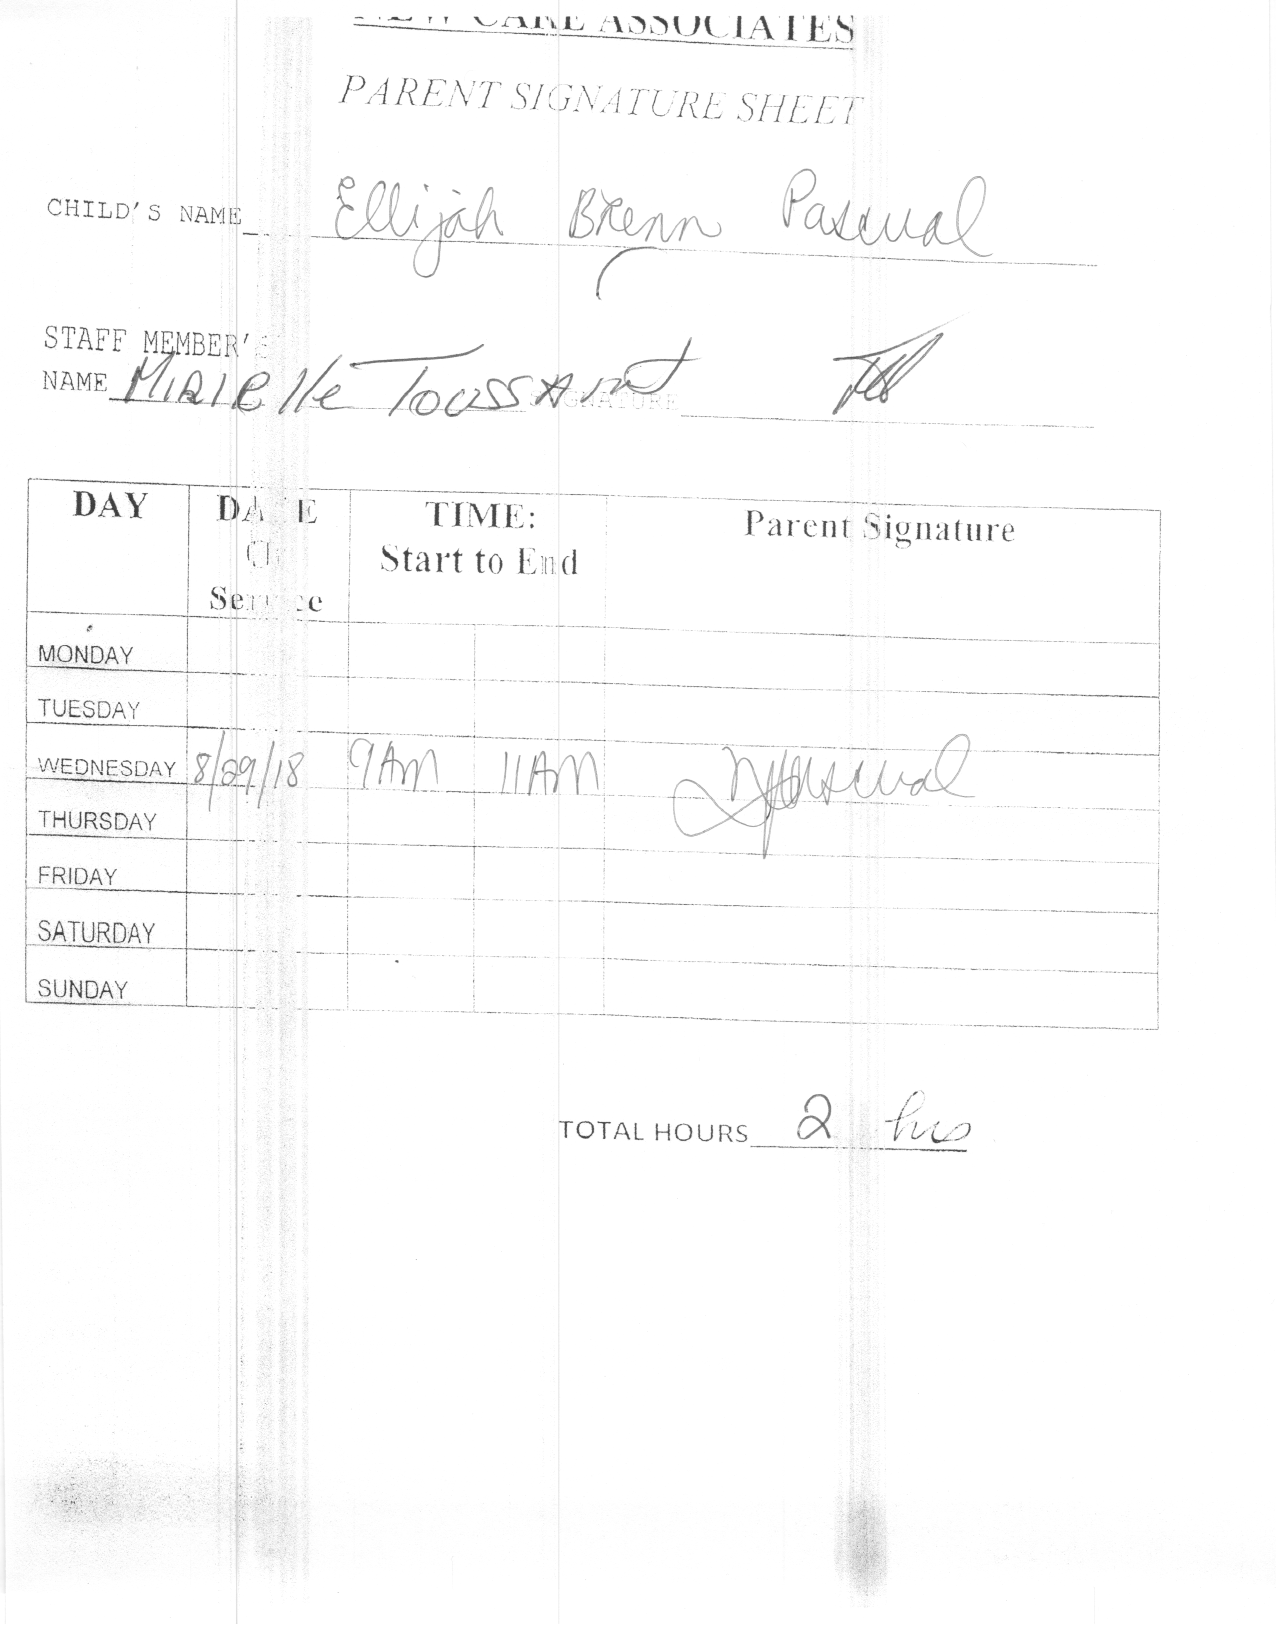 NEW CARE ASSOCIATES
PARENT SIGNATURE SHEET
CHILD'S NAME Ellijah Brenn Pascual
STAFF MEMBER'S
NAME MIRIELLE TOUSSAINT SIGNATURE
DAY DATE TIME: Parent Signature
Of Start to End
Service
MONDAY
TUESDAY
WEDNESDAY 8/29/18 9AM 11AM
THURSDAY
FRIDAY
SATURDAY
SUNDAY
TOTAL HOURS 2 hrs